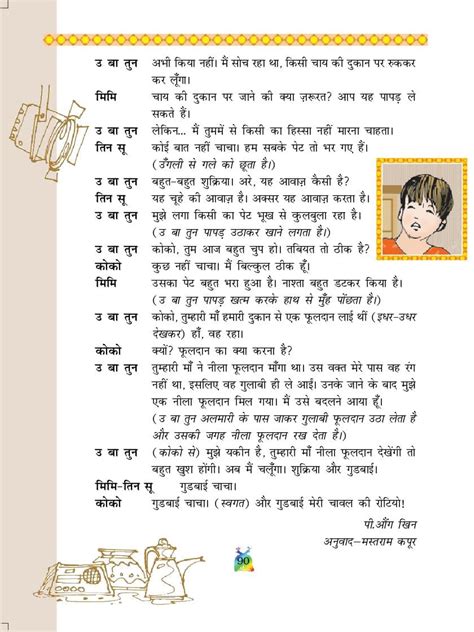 उ बा तुन अभी किया नहीं। मैं सोच रहा था, किसी चाय की दुकान पर रुककर
कर लूँगा।
मिमि चाय की दुकान पर जाने की क्या ज़रूरत? आप यह पापड़ ले
सकते हैं।
उ बा तुन लेकिन... मैं तुममें से किसी का हिस्सा नहीं मारना चाहता।
तिन सू कोई बात नहीं चाचा। हम सबके पेट तो भर गए हैं।
(उँगली से गले को छूता है।)
उ बा तुन बहुत-बहुत शुक्रिया। अरे, यह आवाज़ कैसी है?
तिन सू यह चूहे की आवाज़ है। अक्सर यह आवाज़ करता है।
उ बा तुन मुझे लगा किसी का पेट भूख से कुलबुला रहा है।
(उ बा तुन पापड़ उठाकर खाने लगता है।)
उ बा तुन कोको, तुम आज बहुत चुप हो। तबियत तो ठीक है?
कोको कुछ नहीं चाचा। मैं बिल्कुल ठीक हूँ।
मिमि उसका पेट बहुत भरा हुआ है। नाश्ता बहुत डटकर किया है।
(उ बा तुन पापड़ खत्म करके हाथ से मुँह पोंछता है।)
उ बा तुन कोको, तुम्हारी माँ हमारी दुकान से एक फूलदान लाई थीं (इधर-उधर
देखकर) हाँ, वह रहा।
कोको क्यों? फूलदान का क्या करना है?
उ बा तुन तुम्हारी माँ ने नीला फूलदान माँगा था। उस वक्त मेरे पास वह रंग
नहीं था, इसलिए वह गुलाबी ही ले आईं। उनके जाने के बाद मुझे
एक नीला फूलदान मिल गया। मैं उसे बदलने आया हूँ।
(उ बा तुन अलमारी के पास जाकर गुलाबी फूलदान उठा लेता है
और उसकी जगह नीला फूलदान रख देता है।)
उ बा तुन (कोको से) मुझे यकीन है, तुम्हारी माँ नीला फूलदान देखेंगी तो
बहुत खुश होंगी। अब मैं चलूँगा। शुक्रिया और गुडबाई।
मिमि-तिन सू गुडबाई चाचा।
कोको गुडबाई चाचा। (स्वगत) और गुडबाई मेरी चावल की रोटियो!
पी.औंग खिन
अनुवाद-मस्तराम कपूर
90